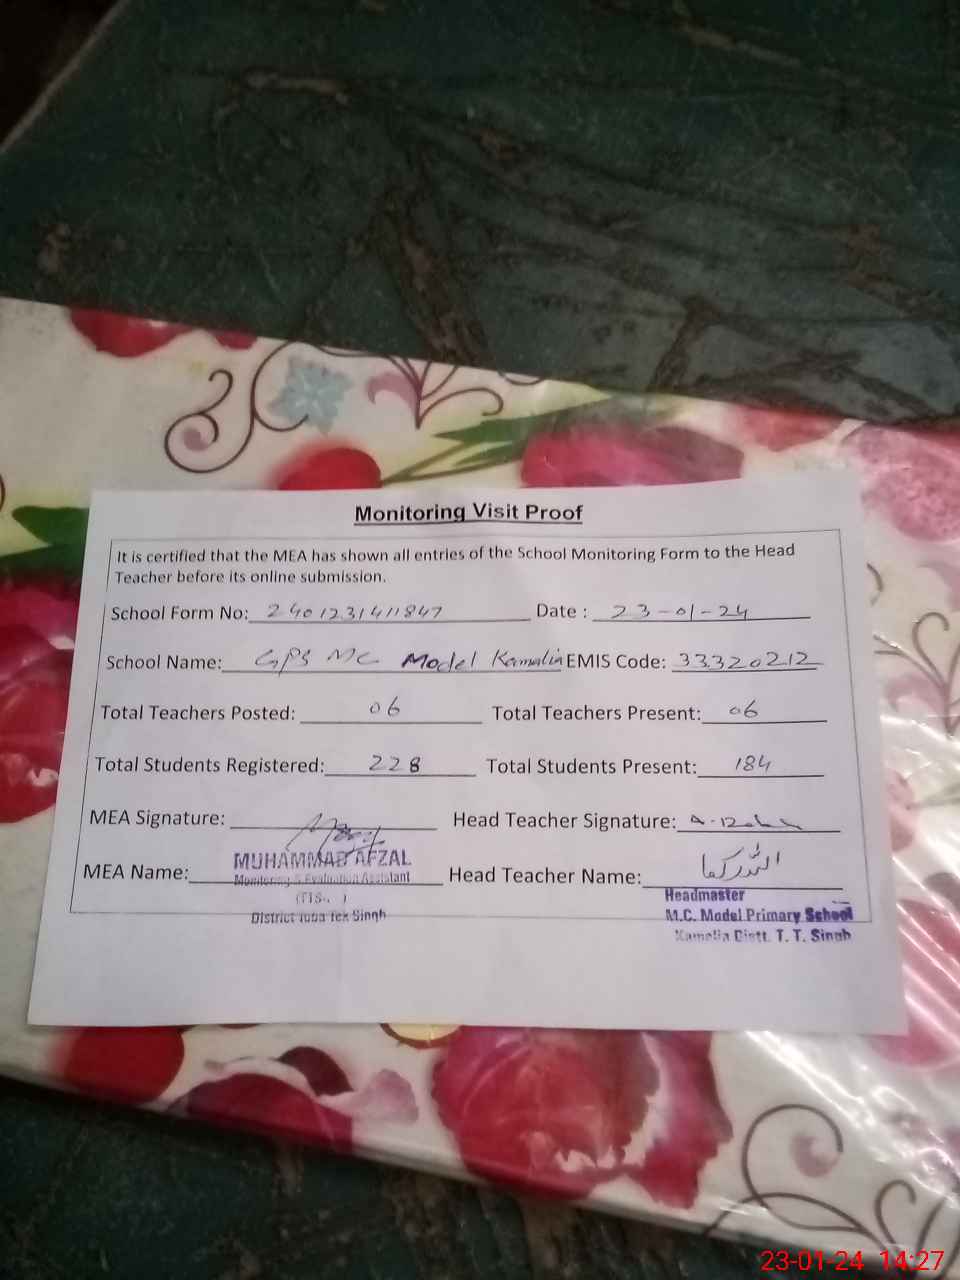 Monitoring Visit Proof
It is certified that the MEA has shown all entries of the School Monitoring Form to the Head
Teacher before its online submission.
School Form No: 2401231411847 Date : 23-01-24
School Name: GPS MC Model Kamalia EMIS Code: 33320212
Total Teachers Posted: 06 Total Teachers Present: 06
Total Students Registered: 228 Total Students Present: 184
MEA Signature: Head Teacher Signature:
MEA Name: MUHAMMAD AFZAL Head Teacher Name:
Monitoring & Evaluation Assistant
District Toba Tek Singh
Headmaster
M.C. Model Primary School
Kamalia Distt. T. T. Singh
23-01-24 14:27